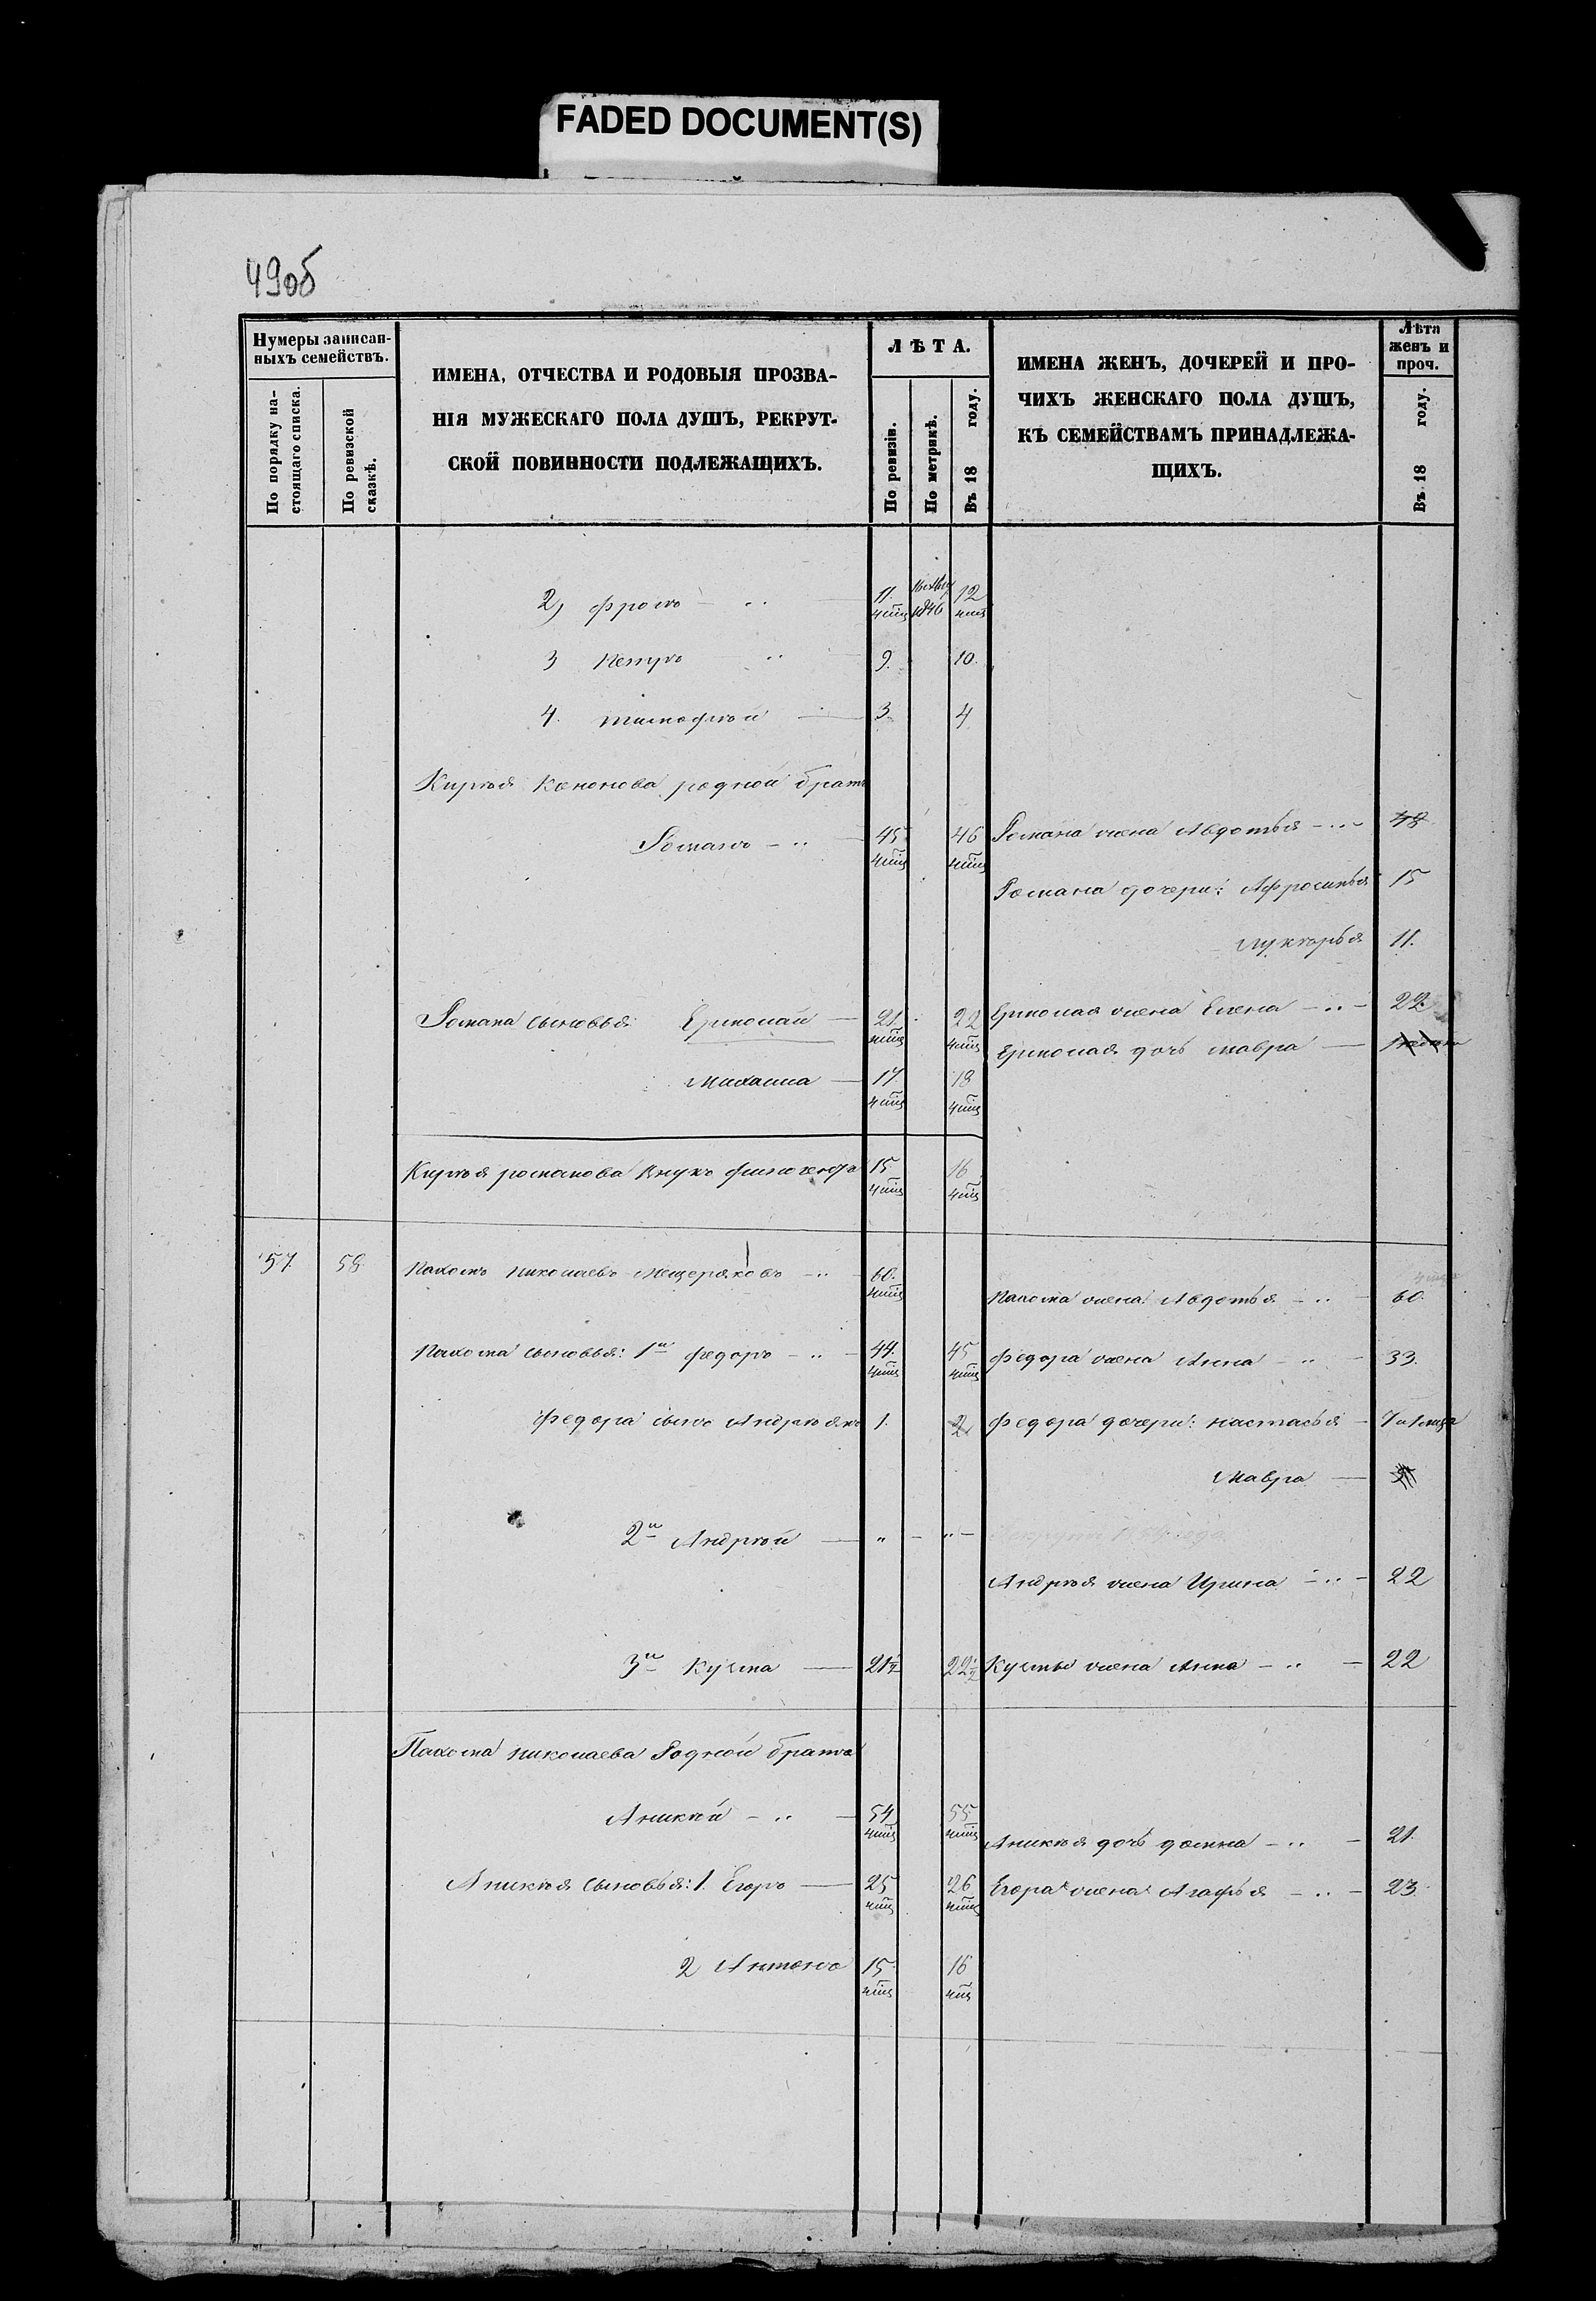 FADED DOCUMENT(S)
49об
Нумеры записан-
ныхъ семействъ.
По порядку на-
стоящаго списка.
По ревизской
сказкѣ.
ИМЕНА, ОТЧЕСТВА И РОДОВЫЯ ПРОЗВА-
НІЯ МУЖЕСКАГО ПОЛА ДУШЪ, РЕКРУТ-
СКОЙ ПОВИННОСТИ ПОДЛЕЖАЩИХЪ.
ЛѢТА.
По ревизіи.
По метрикѣ.
Въ 18 году.
ИМЕНА ЖЕНЪ, ДОЧЕРЕЙ И ПРО-
ЧИХЪ ЖЕНСКАГО ПОЛА ДУШЪ,
КЪ СЕМЕЙСТВАМЪ ПРИНАДЛЕЖА-
ЩИХЪ.
Лѣта
женъ и
проч.
Въ 18 году.
2, фролъ 11. 1846 12
3 Петръ 9. 10.
4. тимофѣй 3. 4
Кирѣя Кононова родной братъ
Романъ 45 46 Романа жена Авдотья 48
Романа дочери: Афросинья 15
лукѣрья 11.
Романа сыновья Ермолай 21 22 Ермолая жена Елена 22
Ермолая дочь мавра
Михаила 17 18
Кирѣя романова внукъ 15 16
57. 58 Пахомъ николаевъ Мещеряковъ 60. Пахома жена Авдотья 60.
Пахома сыновья: 1й федоръ 44. 45 федора жена Анна 33.
федора сынъ Андреянъ 1. 2 федора дочери: настасья
Мавра
2й Андрѣй
Андрѣя жена Ирина 22
3й Кузма 21½ 22½ Кузмы жена Анна 22
Пахома николаева Родной братъ
Аникѣй 54 55 Аникѣя дочь домна 21.
Аникѣя сыновья: 1. Егоръ 25 26 Егора жена Агафья 23.
2 Антонъ 15 16